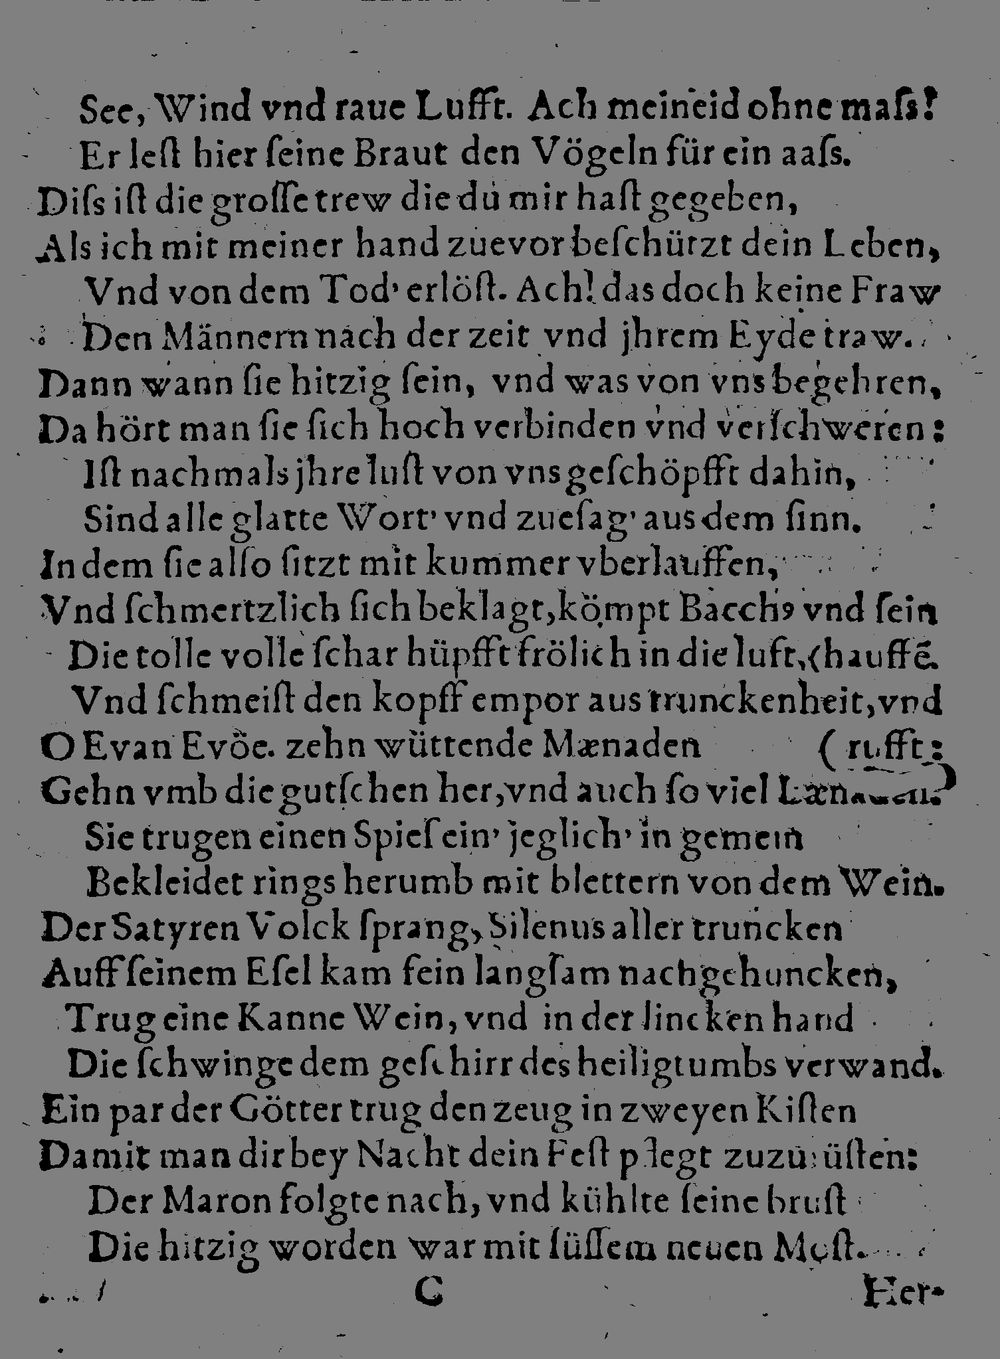 See, Wind vnd raue Lufft. Ach meineid ohne maſs!
Er leſt hier ſeine Braut den Vögeln für ein aaſs.
Diſs iſt die groſſe trew die du mir haſt gegeben,
Als ich mit meiner hand zuevor beſchützt dein Leben,
Vnd von dem Tod' erlöſt. Ach! das doch keine Fraw
Den Männern nach der zeit vnd jhrem Eyde traw.
Dann wann ſie hitzig ſein, vnd was von vns begehren,
Da hört man ſie ſich hoch verbinden vnd verſchweren:
Iſt nachmals jhre luſt von vns geſchöpfft dahin,
Sind alle glatte Wort' vnd zueſag' aus dem ſinn.
In dem ſie alſo ſitzt mit kummer vberlauffen,
Vnd ſchmertzlich ſich beklagt, kömpt Bacchꝰ vnd ſein
Die tolle volle ſchar hüpfft frölich in die luft, (hauffẽ.
Vnd ſchmeiſt den kopff empor aus trunckenheit, vnd
O Evan Evöe. zehn wüttende Mænaden ( rufft:
Gehn vmb die gutſchen her, vnd auch ſo viel
Sie trugen einen Spieſ ein' jeglich' in gemein
Bekleidet rings herumb mit blettern von dem Wein.
Der Satyren Volck ſprang, Silenus aller truncken
Auff ſeinem Eſel kam fein langſam nachgehuncken,
Trug eine Kanne Wein, vnd in der lincken hand
Die ſchwinge dem geſchirr des heiligtumbs verwand.
Ein par der Götter trug den zeug in zweyen Kiſten
Damit man dir bey Nacht dein Feſt pflegt zuzurüſten:
Der Maron folgte nach, vnd kühlte ſeine bruſt
Die hitzig worden war mit ſüſſem neuen Moſt.
C Her-